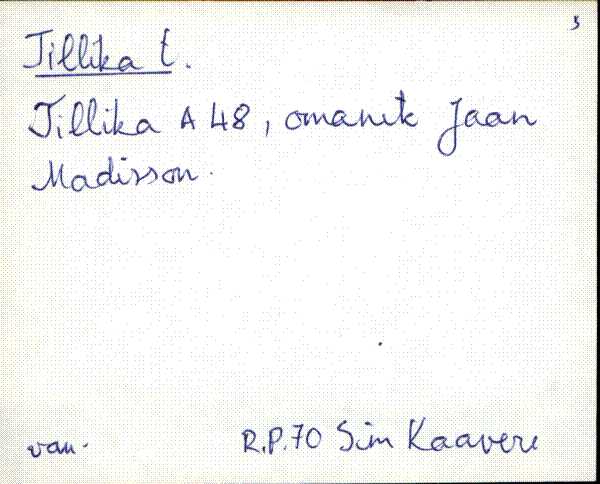 5
Tillika t.
Tillika A 48, omanik Jaan
Madisson.
van.
R.P.70 Sim Kaavere